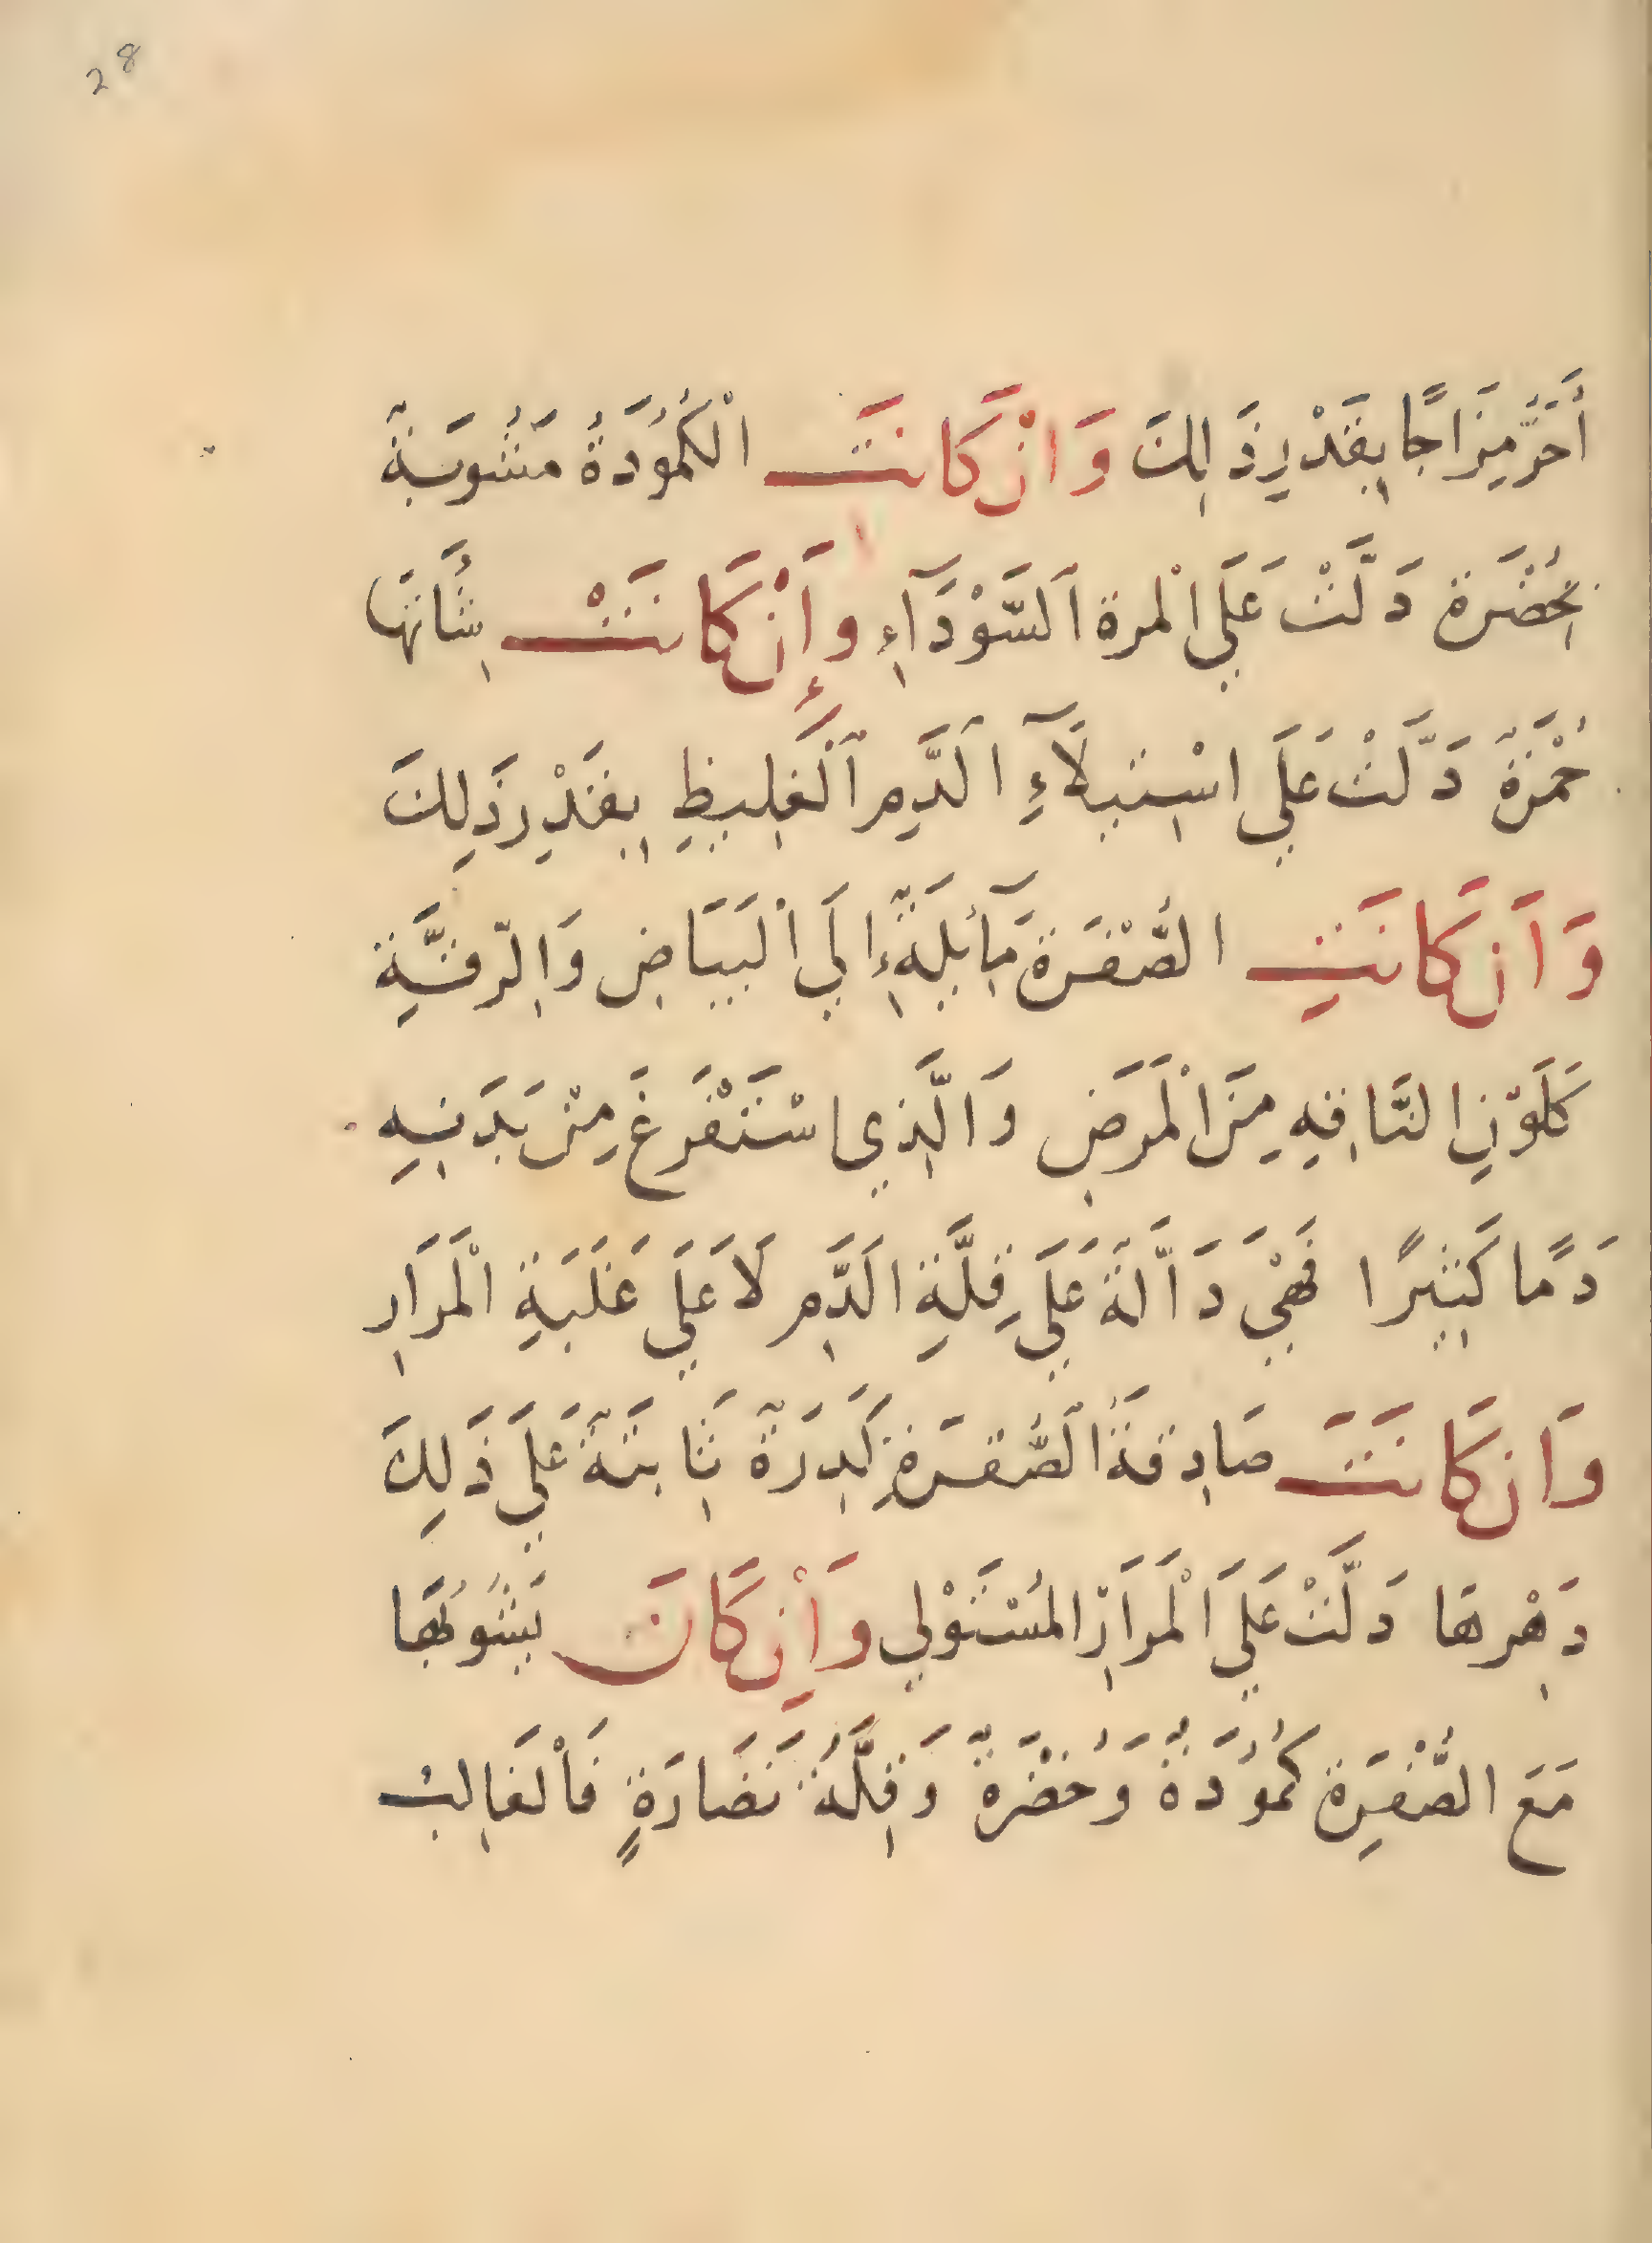 28
أَحَرَّ مِزَاجًا بِقَدْرِ ذَالِكَ وَانْ كَانَتَ الْكُمُودَةُ مَشُوبَةٌ
بِخُضْرَة دَلَّتْ عَلَي الْمرة اَلسَّوْدَآءِ وإِنْ كَانَتْ شَأنهَا
حُمْرَةٌ دَلَّتْ عَلَي اسْتِيلَآءِ الَدَّمِ اَلْغَلِيظِ بِقَدْرِ ذَلِكَ
وَاَن كَانَتِ الصُّفْرَة مَآئِلَةً إِلَي الْبَيَاضِ وَالِرّقَّيَةِ
كَلَوْنِ النَّاقِهِ مِنَ الْمَرَضِ وَالَّذِي اسْتَفْرَغَ مِنْ بَدَنِهِ
دَمًا كَثِيرًا فَهْيَ دَاَلَّة عَلَي قِلَّةِ الَدَّمِ لَا عَلَي غَلَبَةِ الْمَرَارِ
وَان كَانَتَ صَادِقةُ الصُّفرَةِ كَدِرَةٌ ثَابِتَةٌ عَلَي ذَلِكَ
دَهْرِهَا دَلَّتْ عَلَي الْمَرَارِ المُسْتَوْلي وَاِنْ كَانَ يَشُوبُهَا
مَعَ الصُّفرَة كُمُودَةٌ وَخُضْرَةٌ وَقِلَّةُ نَضَارَةٍ فَاْلغَالِبُ